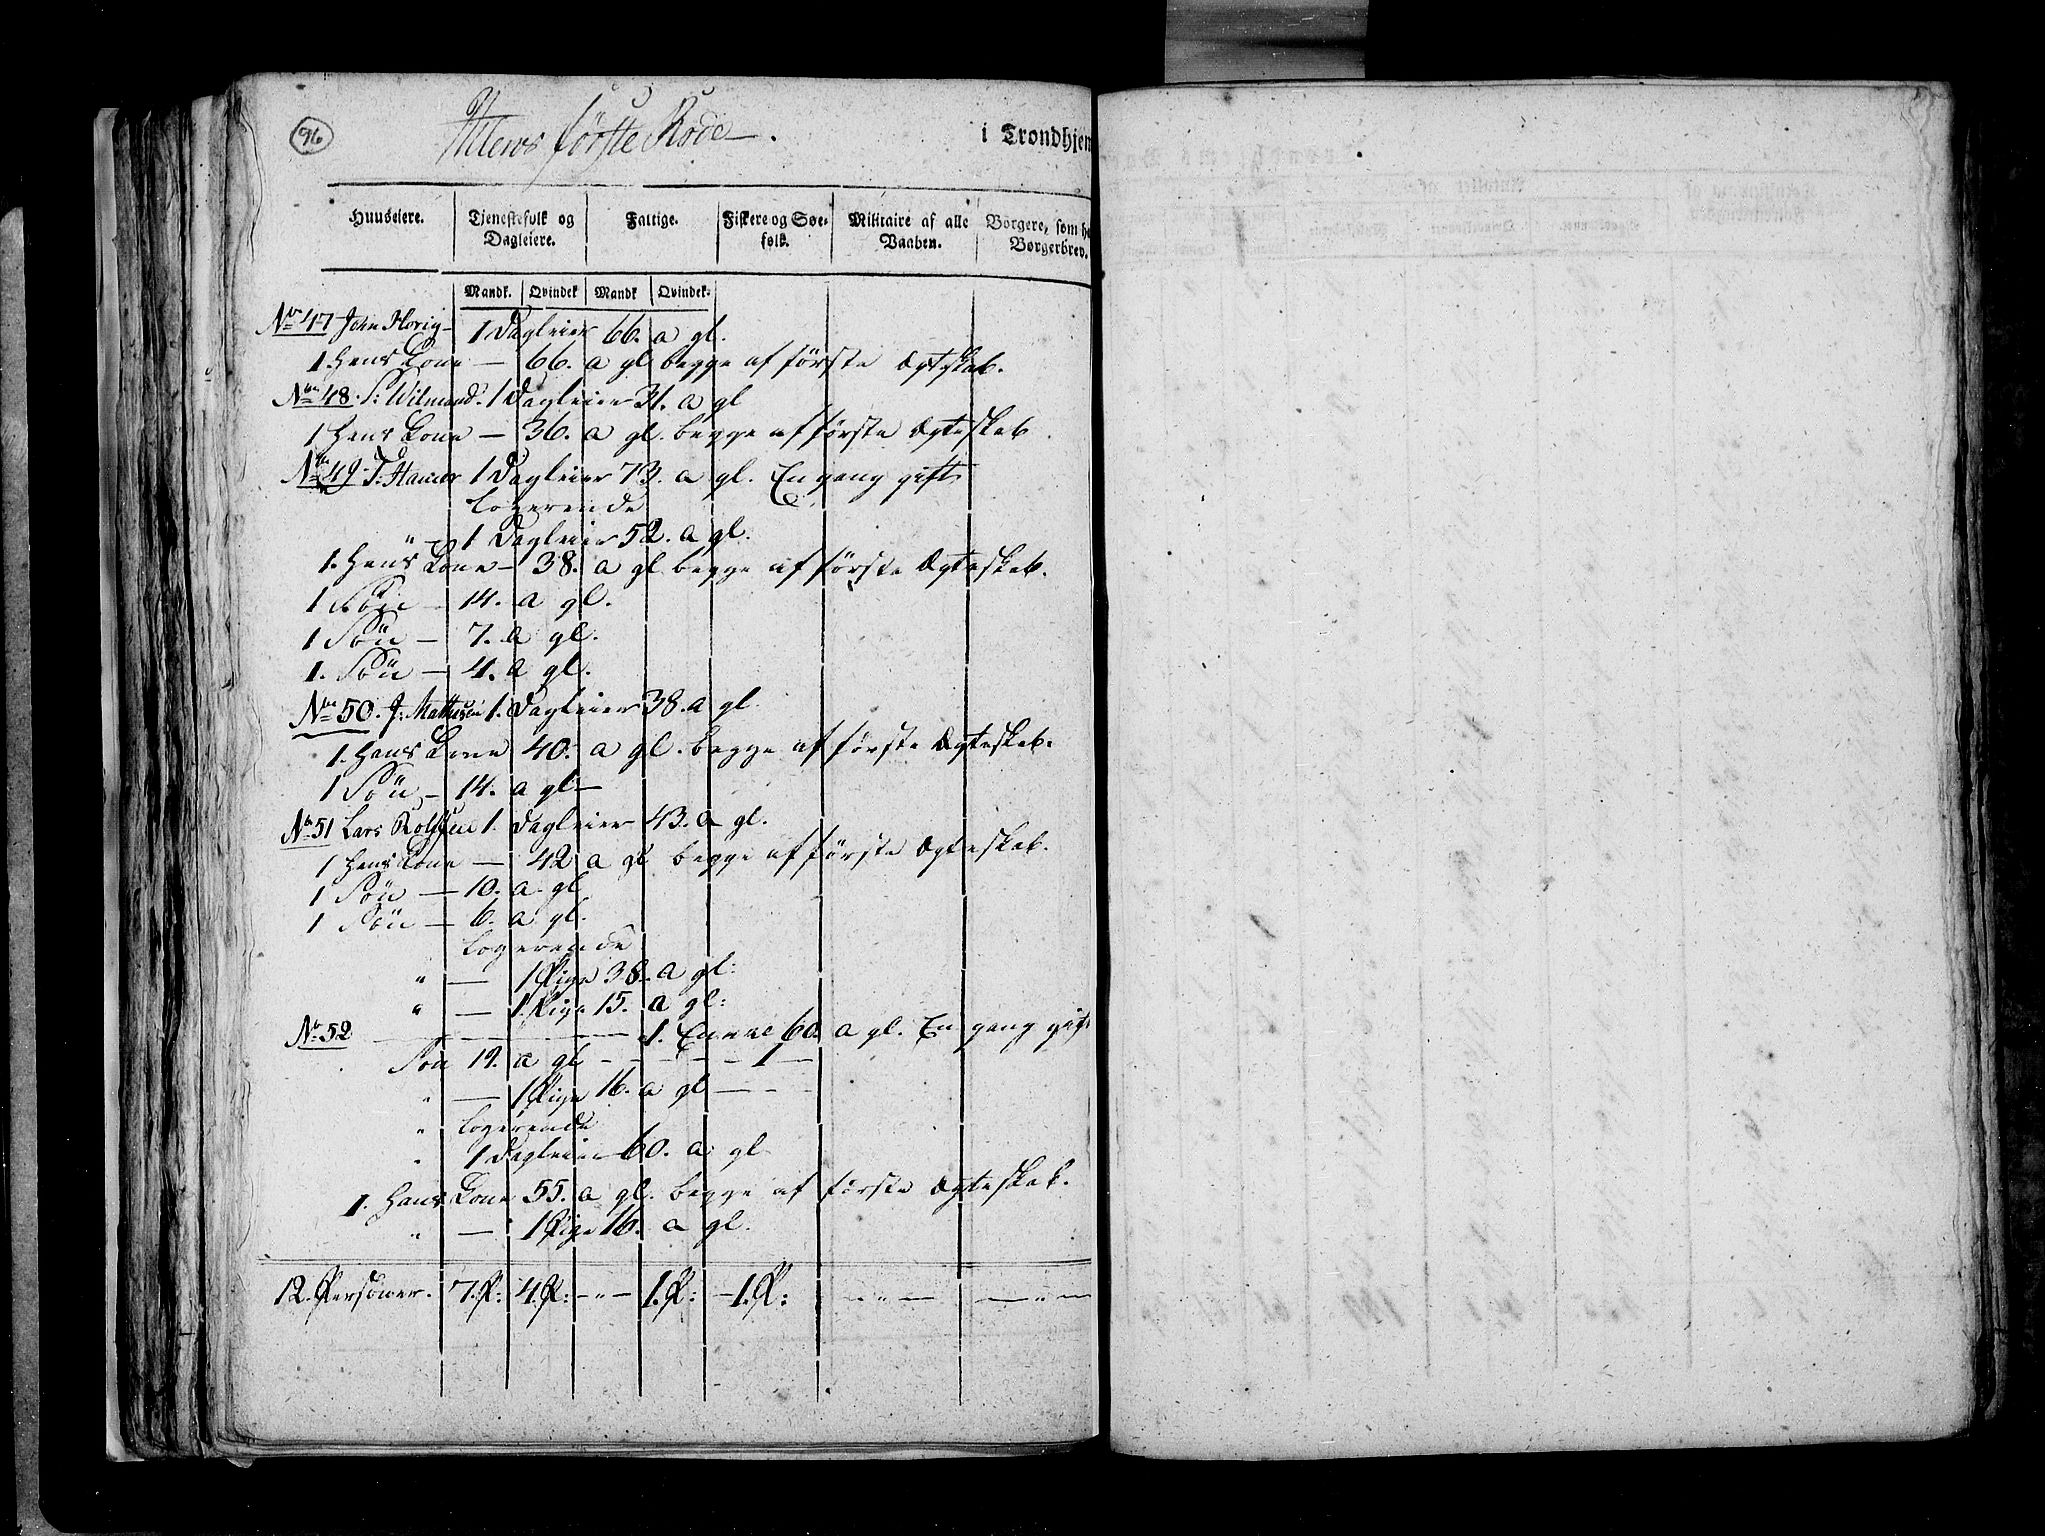 96
Ihlens første Rode.
i Trondhjem
Huuseiere.
Tjenestefolk og Dagleiere.
Fattige.
Fiskere og Søe-folk.
Militaire af alle Vaaben.
Borgere, som ha
Borgerbrev.
Mandk. Qvindek Mandk Qvindek.
No 47 John Horig - 1 Dagleier 66. a gl.
1 Hens Kone — 66. a gl begge af første Ægtskab.
No 48. P: Wilmand. 1 Dagleier 31. a gl
1 Hens Kone — 36. a gl. begge af første Ægteskab.
No 49 T: Hauner 1 Dagleier 73. a gl. En gang gift
Logerende
" — 1 Dagleier 52. a gl.
1. Hens Kone — 38. a gl begge af første Ægteskab.
1 Søn — 14. a gl.
1 Søn — 7. a gl.
1. Søn — 4. a gl.
No 50. J: Mathisen 1. Dagleier 38. a gl.
1. Hans Kone 40. a gl. begge af første Ægteskab.
1 Søn — 14. a gl —
No 51 Lars Rolfsen 1. Dagleier 43. a gl.
1 Hans Kone — 42 a gl begge af første Ægteskab.
1 Søn — 10. a gl
1 Søn — 6. a gl.
Logerende
" — 1 Pige 38. a gl:
" — 1. Pige 15. a gl:
No 52 — — — 1. Enke 60. a gl. En gang gift
Søn 19. a gl - - - - 1 —
" — 1 Pige 16. a gl — - -
" Logerende
" 1 Dagleier 60. a gl
1. Hans Kone 55. a gl. begge af første Ægteskab.
" — 1 Pige 16. a gl.
12. Personer. 7. P: 4. P: — " — 1. P: — 1. P: — " — — " —